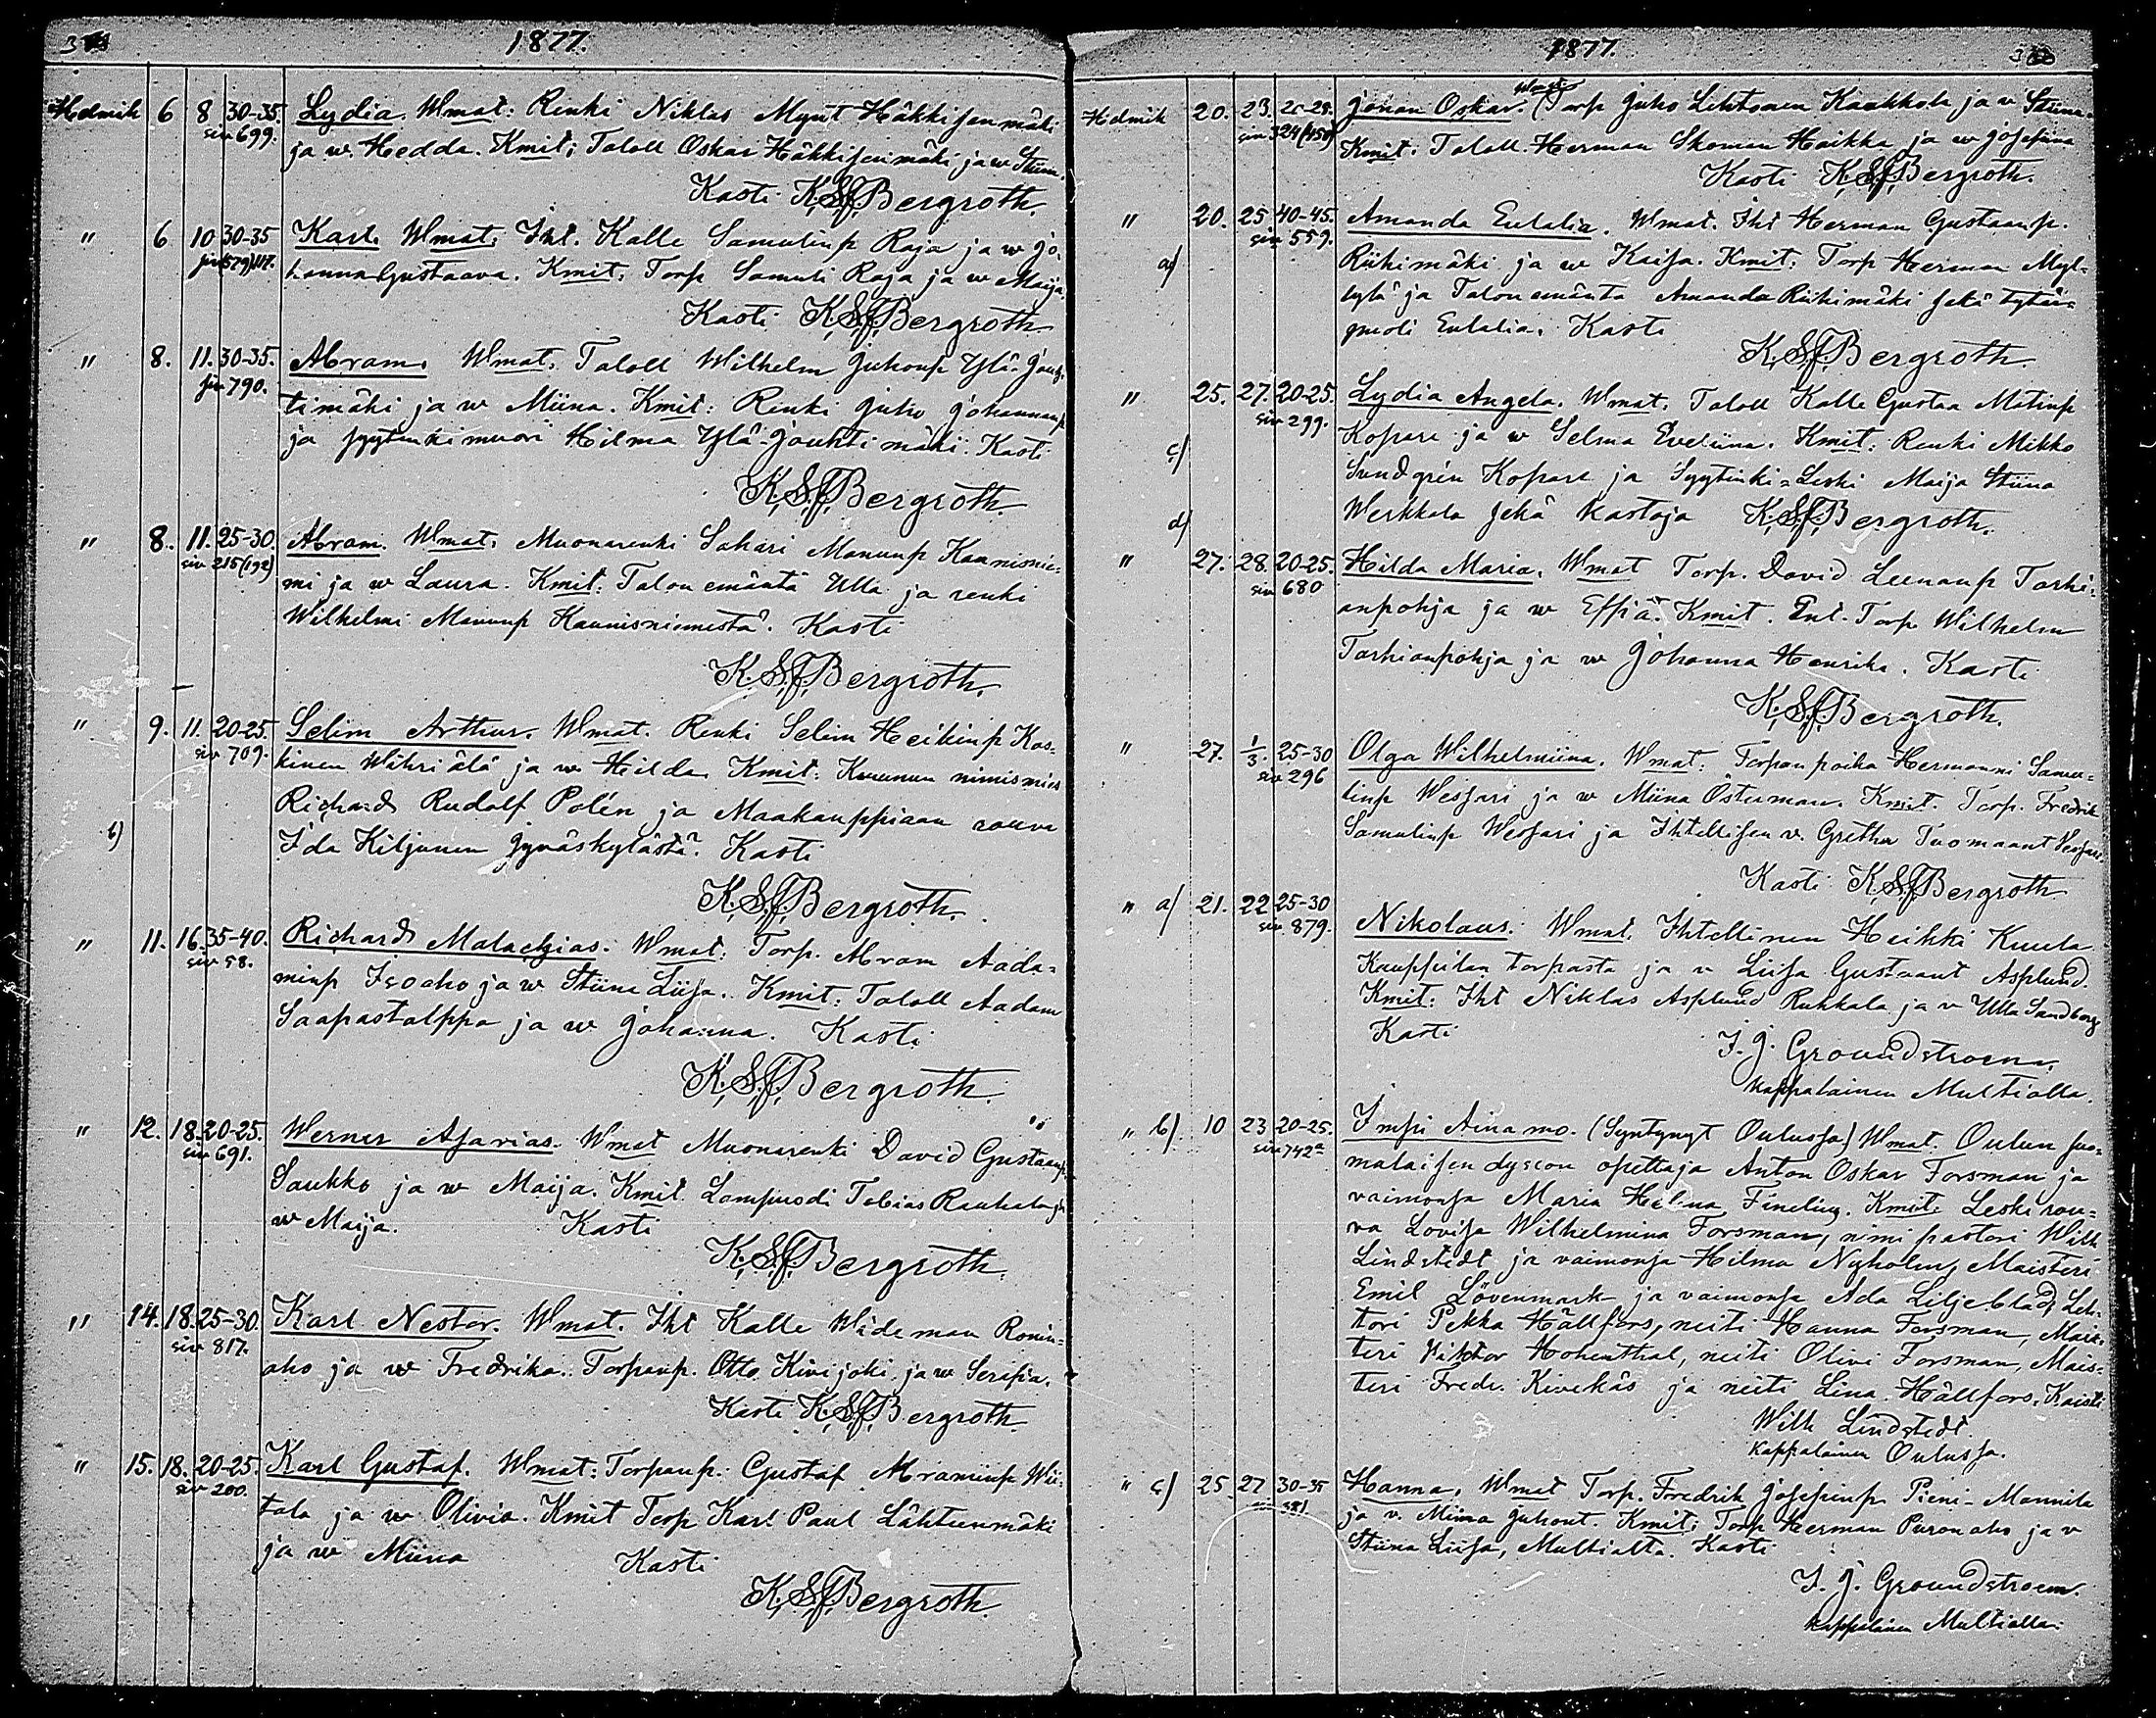 1877.
Helmik 6 8 30-35. Lydia. Wmat: Renki Niklas Mynt Häkkisenmäki
siv 699. ja w. Hedda. Kmit: Taloll Oskar Häkkisenmäki ja w Stiina.
Kasti K.S.J.Bergroth.
" 6 10 30-35 Karl. Wmat. Iht. Kalle Samulinp Raja ja w Jo-
hanna Gustaava. Kmit: Torp Samuli Raja ja w Maija.
Kasti K.S.J.Bergroth
" 8. 11. 30-35. Abram. Wmat. Taloll Wilhelm Juhonp Ylä-Jouh-
siv 790. timäki ja w Miina. Kmit: Renki Juho Johannanp
ja syytinkimuori Hilma Ylä-Jouhtimäki. Kasti
K.S.J.Bergroth.
" 8. 11. 25-30 Abram. Wmat. Muonarenki Sakari Manunp Kaunisnie-
siv 215(192) mi ja w Laura. Kmit: Talon emäntä Ulla ja renki
Wilhelmi Manunp Kaunisniemestä. Kasti
K.S.J.Bergroth.
" 9. 11. 20-25. Selim Arthur. Wmat. Renki Selim Heikinp Kos-
siv 709. kinen Währiälä ja w Hilda. Kmit: Kruunun nimismies
Richard Rudolf Polén ja Maakauppiaan rouva
b) Ida Kiljunen Jyväskylästä. Kasti
K.S.J.Bergroth.
" 11. 16. 35-40. Richard Malachias. Wmat: Torp. Abram Aada-
siv 58. minp Isoaho ja w Stiina Liisa. Kmit: Taloll Aadam
Saapastalppo ja w Johanna. Kasti
K.S.J.Bergroth.
" 12. 18. 20-25. Werner Asarias. Wmat Muonarenki David Gustaanp.
siv 691. Saukko ja w Maija. Kmit. Lampuodi Tobias Rauhala ja
w Maija. Kasti
K.S.J.Bergroth.
" 14. 18. 25-30. Karl Nestor. Wmat. Iht Kalle Wideman Ronin-
siv 817. aho ja w Fredrika. Torpanp. Otto Kivijoki ja w Serafia.
Kasti K.S.J.Bergroth.
" 15. 18. 20-25. Karl Gustaf. Wmat: Torpanp. Gustaf Abraminp Wii-
siv 200. tala ja w Olivia. Kmit Torp Karl Paul Lähteenmäki
ja w Miina Kasti
K.S.J.Bergroth.
1877
Helmik 20. 23. Johan Oskar. Wmat. (Torp Juho Lehtonen Kaakkola ja w Stiina.
Kmit: Taloll. Herman Skoman Hoikka ja w Josefiina
Kasti K.S.J.Bergroth.
" 20. 25 40-45. Amanda Eulalia. Wmat. Iht Herman Gustaanp.
siv 559.
a) Riihimäki ja w Kaisa. Kmit: Torp Herman Myl-
lylä ja Talonemäntä Amanda Riihimäki sekä tytär-
puoli Eulalia. Kasti
K.S.J.Bergroth.
" 25. 27. 20-25. Lydia Angela. Wmat. Taloll Kalle Gustaa Matinp
siv 299.
c) Kopare ja w Selma Eveliina. Kmit: Renki Mikko
Sundgrén Kopare ja Syytinki-Leski Maija Stiina
d) Werkkala sekä Kastaja K.S.J.Bergroth.
" 27. 28. 20-25. Hilda Maria. Wmat Torp. David Leenanp Tarhi-
siv 680 anpohja ja w Effiä. Kmit. Ent. Torp. Wilhelm
Tarhianpohja ja w Johanna Henrika. Kasti
K.S.J.Bergroth.
" 27. 1/3. 25-30 Olga Wilhelmiina. Wmat: Torpan poika Hermanni Samu-
siv 296 linp Wessari ja w Miina Österman. Kmit. Torp. Fredrik
Samulinp Wessari ja Ihtellisen v. Gretha Tuomaant Wessari.
Kasti K.S.J.Bergroth
" a) 21. 22 25-30 Nikolaus. Wmat. Ihtellinen Heikki Kuula
siv 879. Kauppilan torpasta ja v Liisa Gustaant Asplund.
Kmit: Iht Niklas Asplund Ruhkala ja v Ulla Sandberg
Kasti I. J. Groundstroem.
Kappalainen Multialla.
" b) 10 23 20-25. Impi Ainamo. (Syntynyt Oulussa) Wmat. Oulun suo-
siv 742a malaisen lyseon opettaja Anton Oskar Forsman ja
vaimonsa Maria Helena Finelius. Kmit: Leski rou-
va Lovisa Wilhelmina Forsman, nimipastori Wilh
Lindstedt ja vaimonsa Hilma Nyholm, Maisteri
Emil Lövenmark ja vaimonsa Ada Liljeblad, Leh-
tori Pekka Hällfors, neiti Hanna Forsman, Mais-
teri Viktor Hohenthal, neiti Olivi Forsman, Mais-
teri Fredr. Kivekäs ja neiti Lina Hällfors. Kasti
Wilh Lindstedt.
Kappalainen Oulussa.
" c) 25. 27 30-35 Hanna. Wmat Torp. Fredrik Josefinp Pieni-Mannila
ja v. Miina Juhont. Kmit: Torp Herman Puronaho ja v
Stiina Liisa, Multialta. Kasti
I. J. Groundstroem.
Kappalainen Multialla.